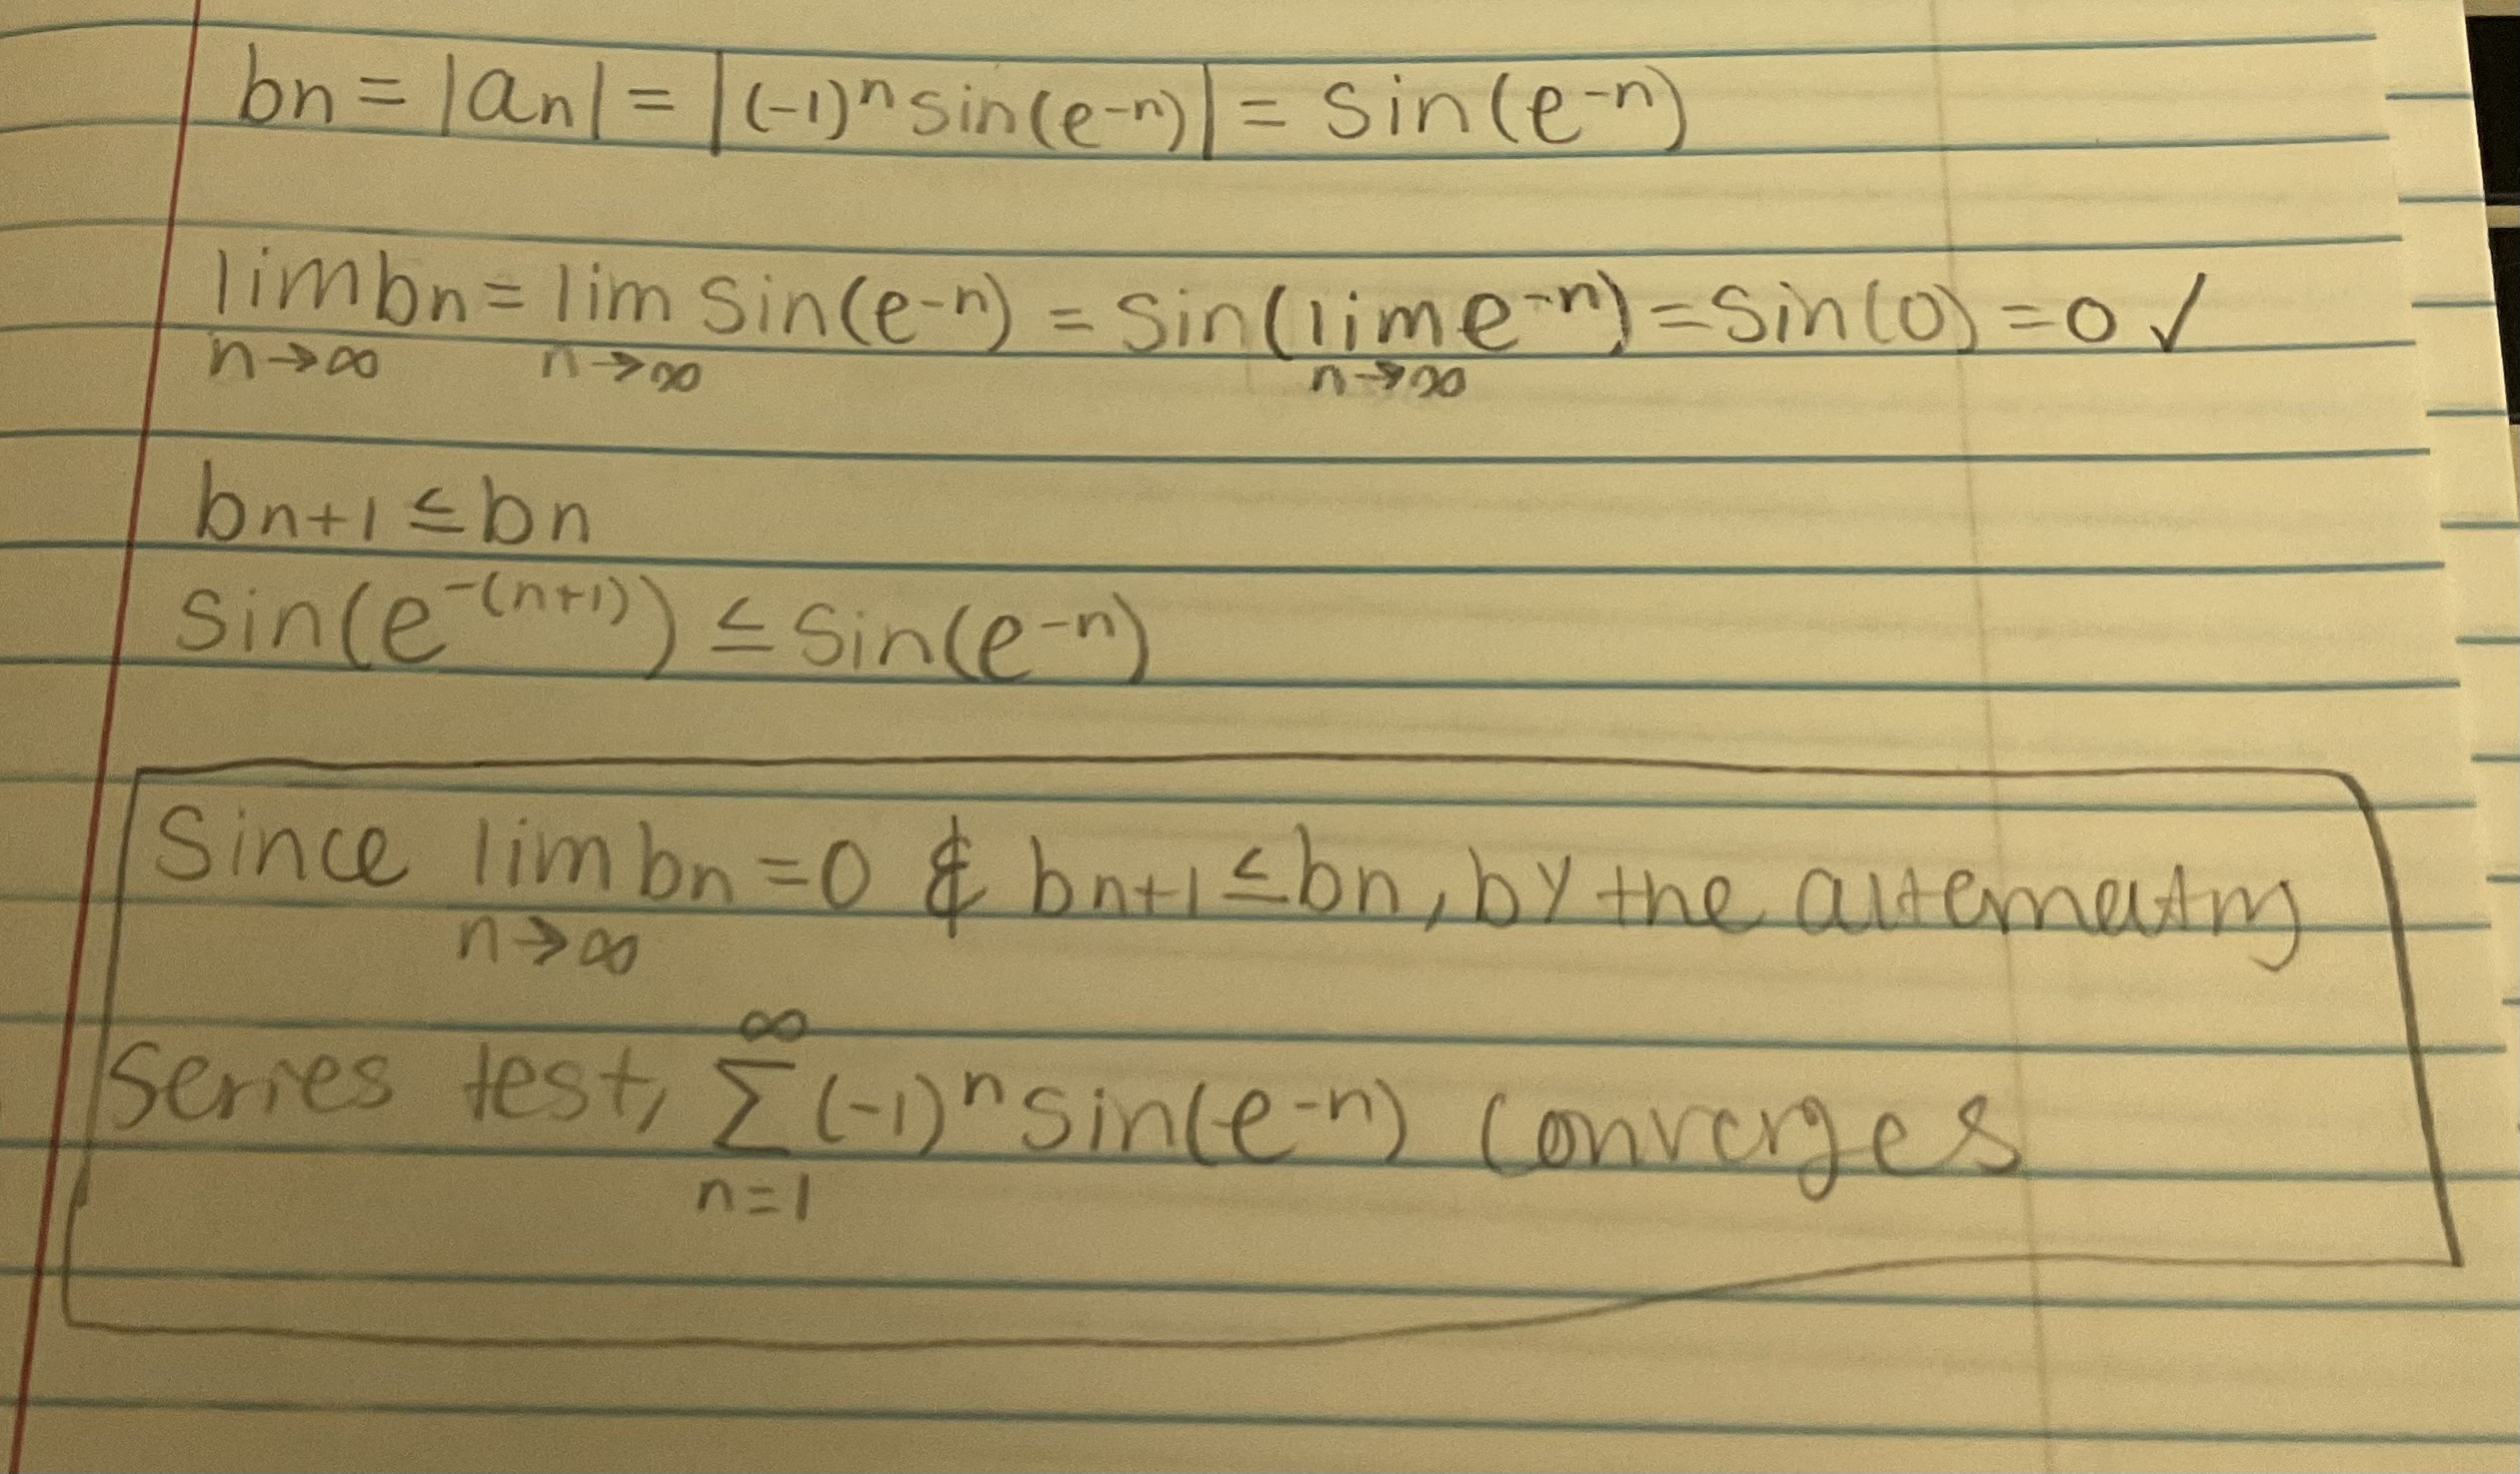 bn = |an| = |(-1)ⁿ sin(e⁻ⁿ)| = sin(e⁻ⁿ)
lim bn = lim sin(e⁻ⁿ) = sin(lim e⁻ⁿ) = sin(0) = 0 ✓
n→∞ n→∞ n→∞
bn+1 ≤ bn
sin(e^-(n+1)) ≤ sin(e⁻ⁿ)
Since lim bn = 0 & bn+1 ≤ bn, by the alternating
n→∞
∞
Series test, Σ (-1)ⁿ sin(e⁻ⁿ) converges
n=1